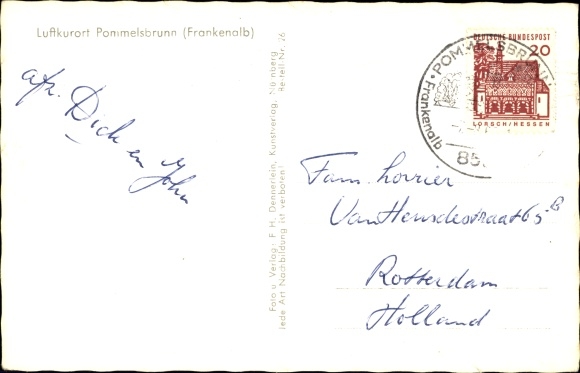 Luftkurort Pommelsbrunn (Frankenalb)
afz. Dick en John
Foto u. Verlag: F. H. Dennerlein, Kunstverlag, Nürnberg
Jede Art Nachbildung ist verboten! Bestell-Nr. 26
DEUTSCHE BUNDESPOST
20
LORSCH/HESSEN
POMMELSBRUNN
Frankenalb
85
Fam. Lorrier
Van Heusdestraat 65 B
Rotterdam
Holland